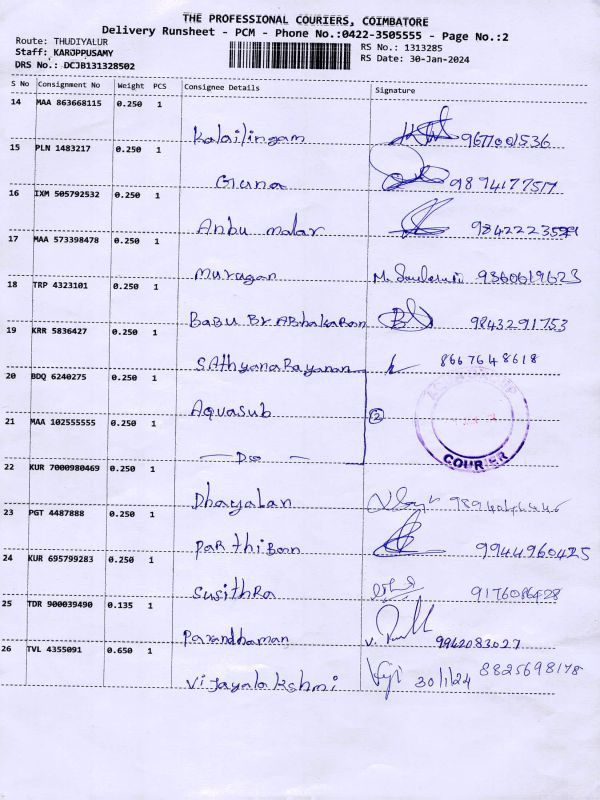 THE PROFESSIONAL COURIERS, COIMBATORE
Delivery Runsheet - PCM - Phone No.:0422-3505555 - Page No.:2
Route: THUDIYALUR
RS No.: 1313285
Staff: KARUPPUSAMY
RS Date: 30-Jan-2024
DRS No.: DCJB131328502
S No Consignment No Weight PCS Consignee Details Signature
14 MAA 863668115 0.250 1
Kalailingam 9677001536
15 PLN 1483217 0.250 1
Guna 9894177517
16 IXM 505792532 0.250 1
Anbu malar
17 MAA 573398478 0.250 1
Murugan 9360619623
18 TRP 4323101 0.250 1
Babu 9843291753
19 KRR 5836427 0.250 1
SAthyanaRayanan 8667648618
20 BDQ 6240275 0.250 1
Aquasub 2
21 MAA 102555555 0.250 1
COURIER
22 KUR 7000980469 0.250 1
Dhayalan
23 PGT 4487888 0.250 1
PaRthiBan 9944960425
24 KUR 695799283 0.250 1
SusithRa
25 TDR 900039490 0.135 1
Parandhaman 9942083027
26 TVL 4355091 0.650 1
Vijayalakshmi Viji 30/1/24 8825698178